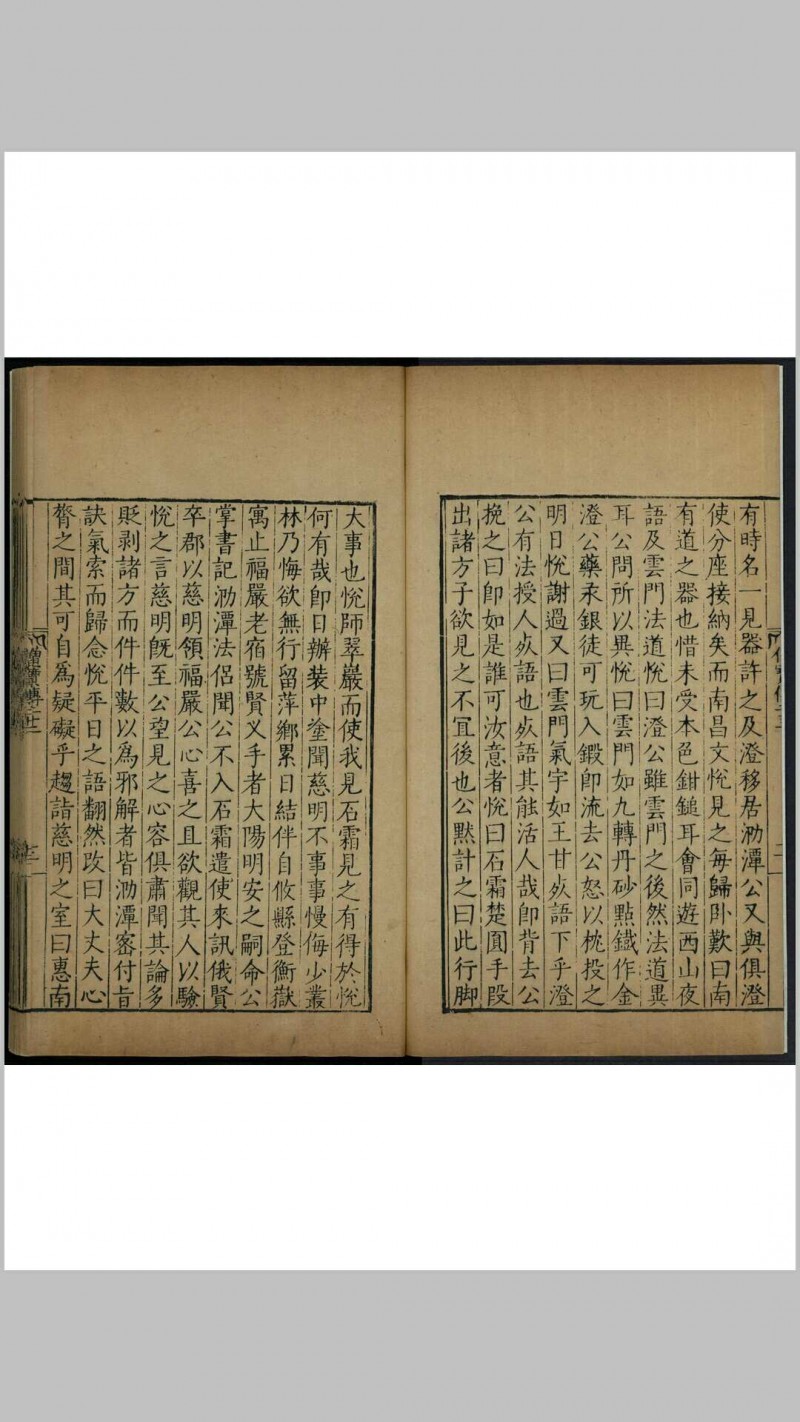 有時名一見器許之及澄移居泐潭公又與俱澄
使分座接納矣而南昌文悅見之每歸卧歎曰南
有道之器也惜未受本色鉗鎚耳會同遊西山夜
語及雲門法道悅曰澄公雖雲門之後然法道異
耳公問所以異悅曰雲門如九轉丹砂點鐵作金
澄公藥汞銀徒可玩入鍛即流去公怒以枕投之
明日悅謝過又曰雲門氣宇如王甘死語下乎澄
公有法授人死語也死語其能活人哉即背去公
挽之曰即如是誰可汝意者悅曰石霜楚圓手段
出諸方子欲見之不宜後也公默計之曰此行脚
大事也悅師翠巖而使我見石霜見之有得於悅
何有哉即日辦装中塗聞慈明不事事慢侮少叢
林乃悔欲無行留萍鄉累日結伴自攸縣登衡嶽
寓止福嚴老宿號賢叉手者大陽明安之嗣命公
掌書記泐潭法侶聞公不入石霜遣使來訊俄賢
卒郡以慈明領福嚴公心喜之且欲觀其人以驗
悅之言慈明既至公望見之心容俱肅聞其論多
貶剥諸方而件件數以為邪解者皆泐潭密付旨
訣氣索而歸念悅平日之語翻然改曰大丈夫心
膂之間其可自為疑礙乎趨詣慈明之室曰惠南